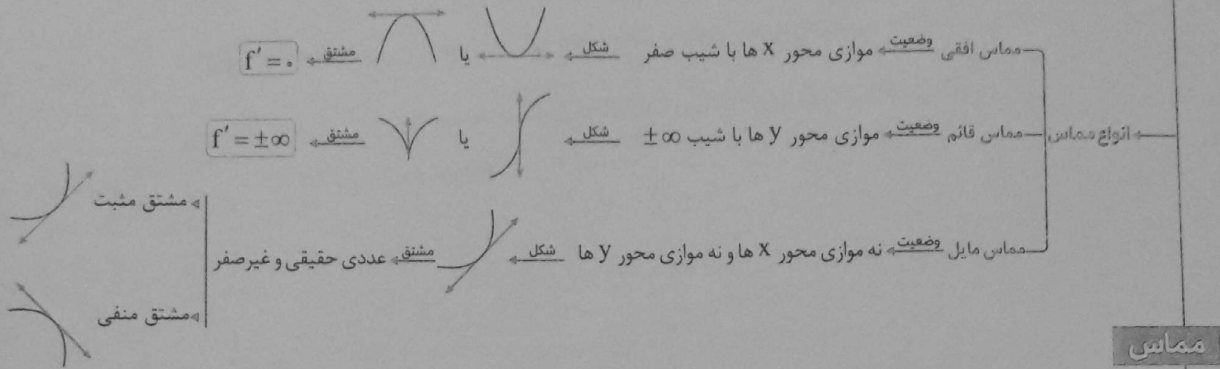 مماس افقی وضعیت موازی محور x ها با شیب صفر شکل یا مشتق f′ = ۰
انواع مماس مماس قائم وضعیت موازی محور y ها با شیب ±∞ شکل یا مشتق f′ = ±∞
مشتق مثبت
مماس مایل وضعیت نه موازی محور x ها و نه موازی محور y ها شکل مشتق عددی حقیقی و غیرصفر
مشتق منفی
مماس